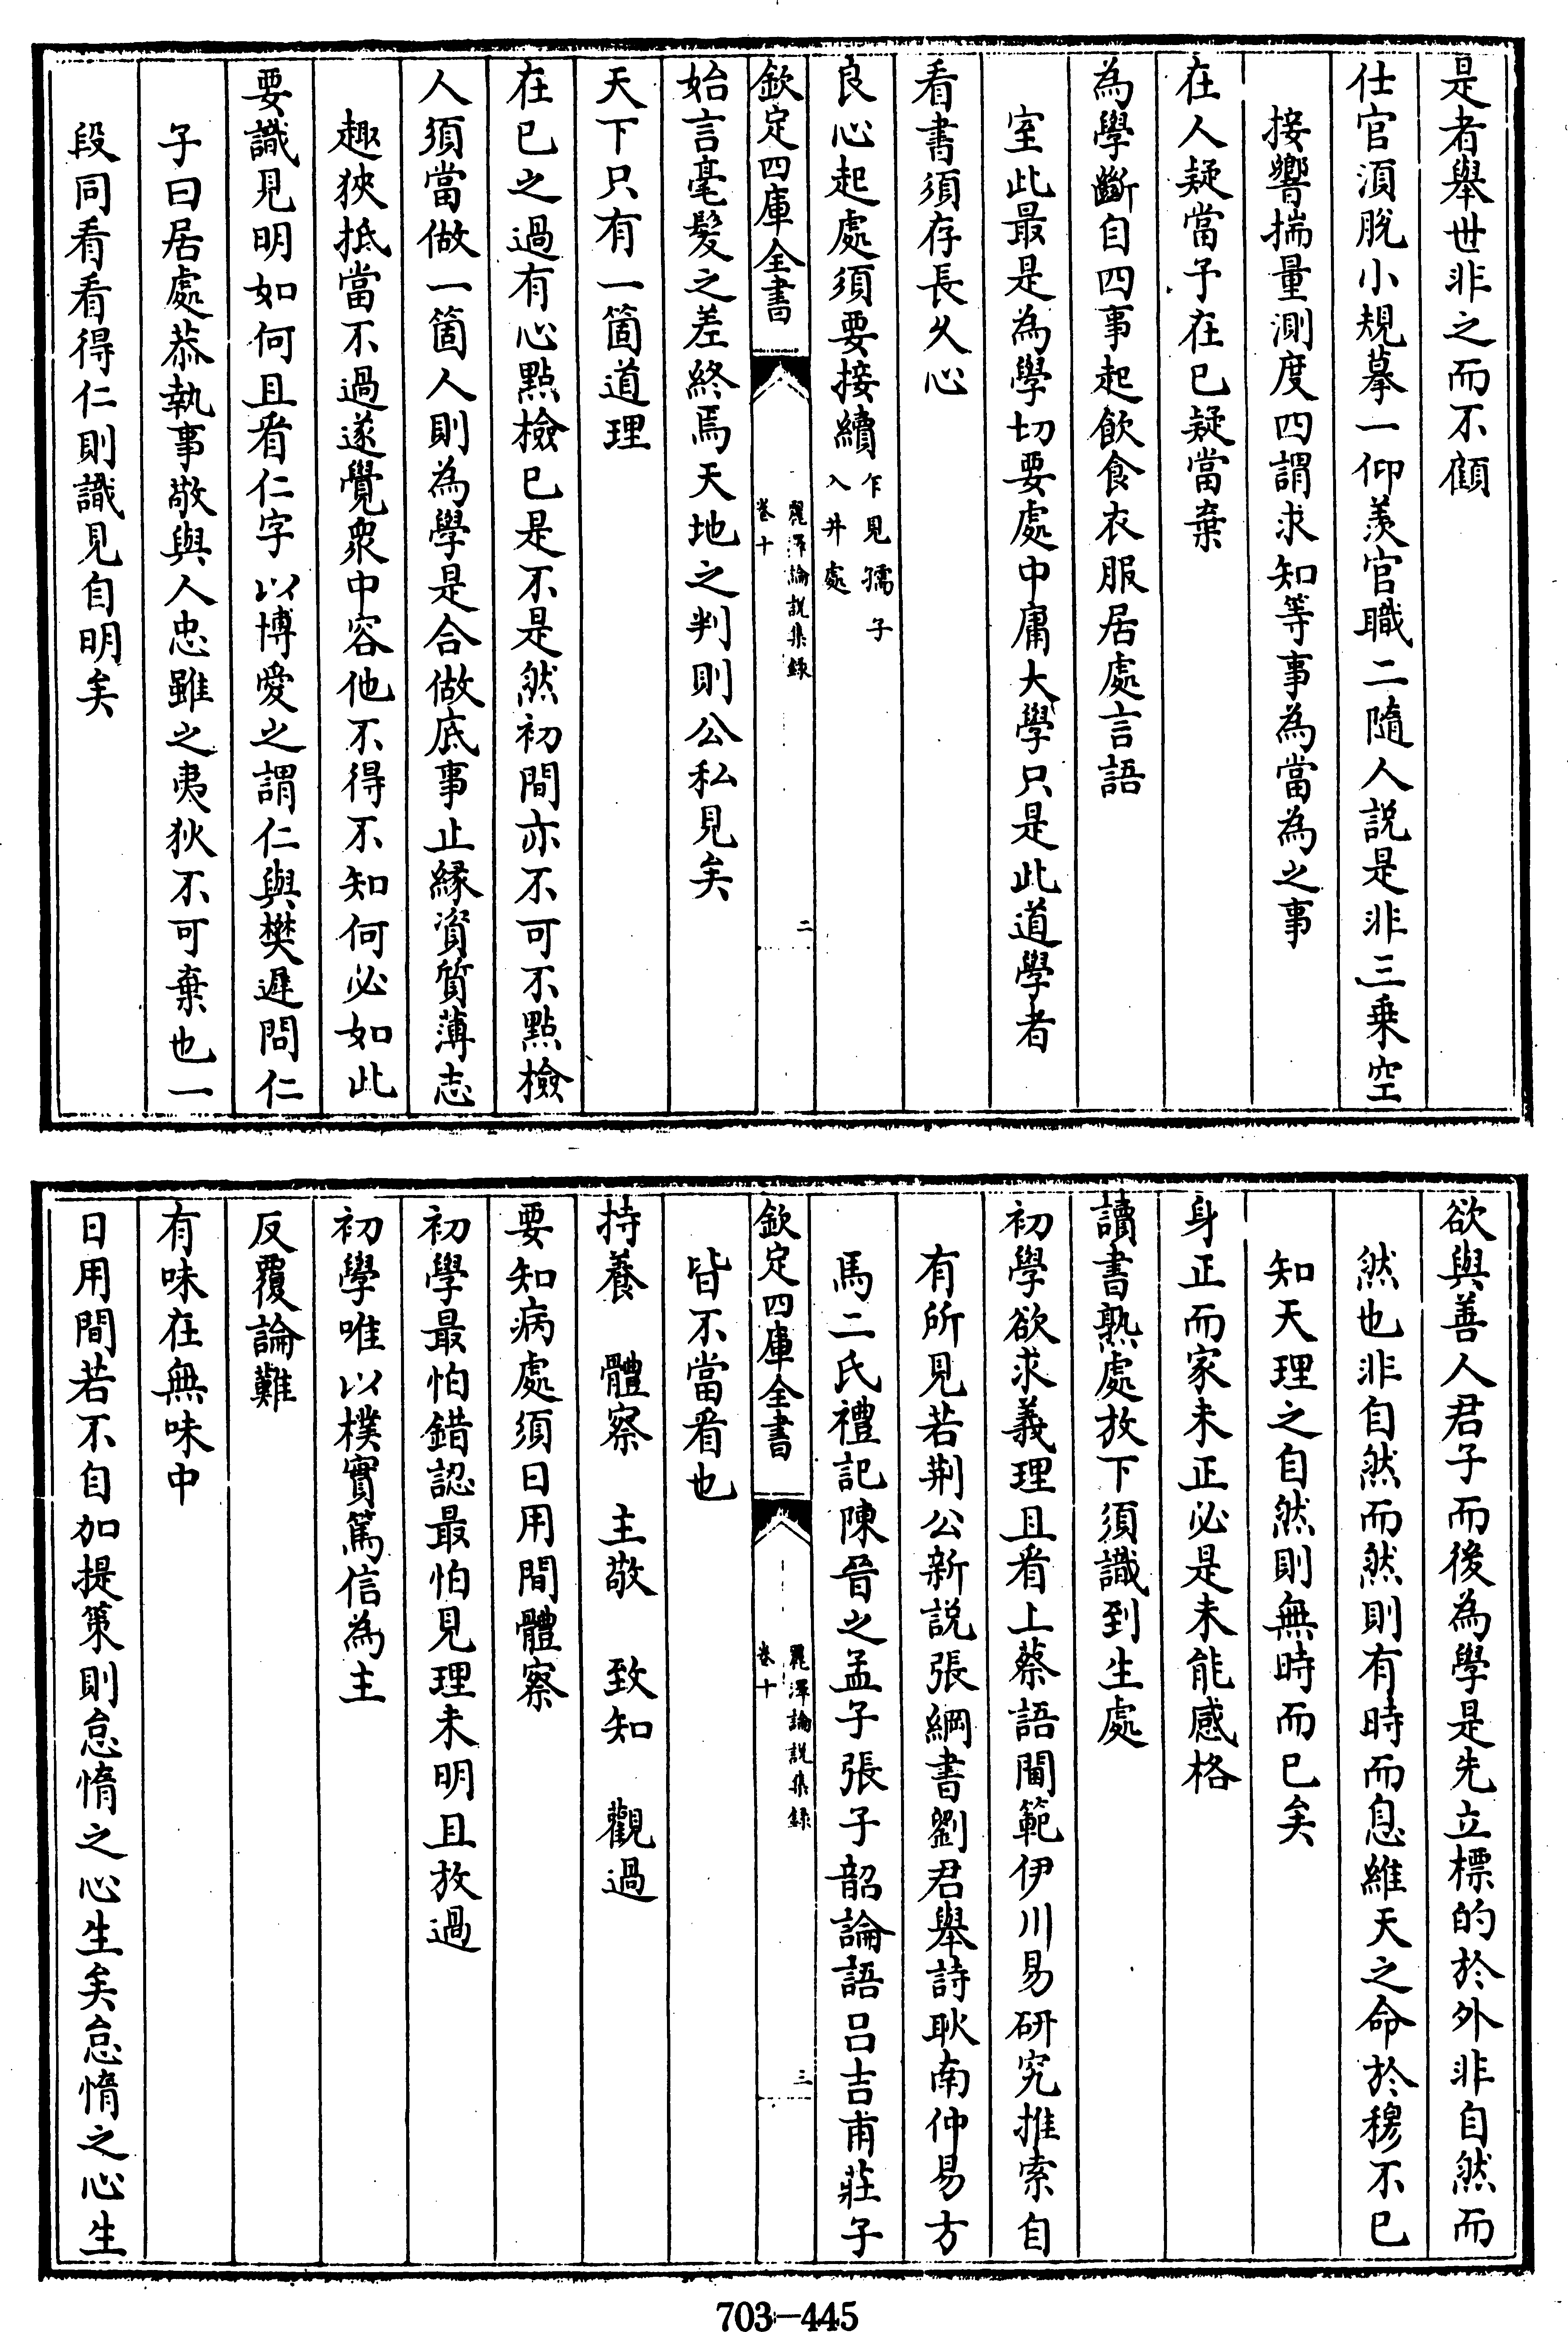 是者舉世非之而不顧
仕官湏脫小規摹一仰羡官職二隨人説是非三乗空
接響揣量測度四謂求知等事為當為之事
在人疑當子在已疑當棄
為學斷自四事起飲食衣服居處言語
室此最是為學切要處中庸大學只是此道學者
看書須存長久心
良心起處須要接續乍見孺子入井處
欽定四庫全書
麗澤論説集錄
卷十
二
始言毫髮之差終焉天地之判則公私見矣
天下只有一箇道理
在已之過有心點檢已是不是然初間亦不可不點檢
人須當做一箇人則為學是合做底事止緣資質薄志
趣狹抵當不過遂覺衆中容他不得不知何必如此
要識見明如何且看仁字以博愛之謂仁與樊遲問仁
子曰居處恭執事敬與人忠雖之夷狄不可棄也一
段同看看得仁則識見自明矣
欲與善人君子而後為學是先立標的於外非自然而
然也非自然而然則有時而息維天之命於穆不已
知天理之自然則無時而已矣
身正而家未正必是未能感格
讀書熟處放下須識到生處
初學欲求義理且看上蔡語閫範伊川易研究推索自
有所見若荆公新説張綱書劉君舉詩耿南仲易方
馬二氏禮記陳晉之孟子張子韶論語呂吉甫莊子
欽定四庫全書
麗澤論説集錄
卷十
三
皆不當看也
持養　體察　主敬　致知　觀過
要知病處須日用間體察
初學最怕錯認最怕見理未明且放過
初學唯以樸實篤信為主
反覆論難
有味在無味中
日用間若不自加提策則怠惰之心生矣怠惰之心生
703-445